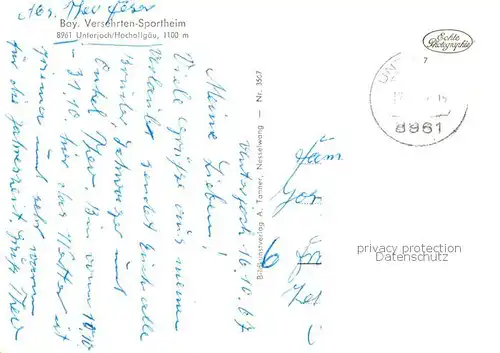 Bay. Versehrten-Sportheim
8961 Unterjoch/Hochallgäu, 1100 m
Echte
Photographie
8961
Unterjoch 16.10.67
Meine
Lieben!
Viele Grüße aus meinem
Urlaub sendet Euch alle
Bruder, Schwager und
Onkel Theo. Bin vom 10.10.
- 31.10. hier das Wetter ist
prima und sehr warm
für die Jahreszeit. Grüße Theo
Bild-Kunstverlag A. Tanner, Nesselwang — Nr. 3567
Fam.
6
privacy protection
Datenschutz